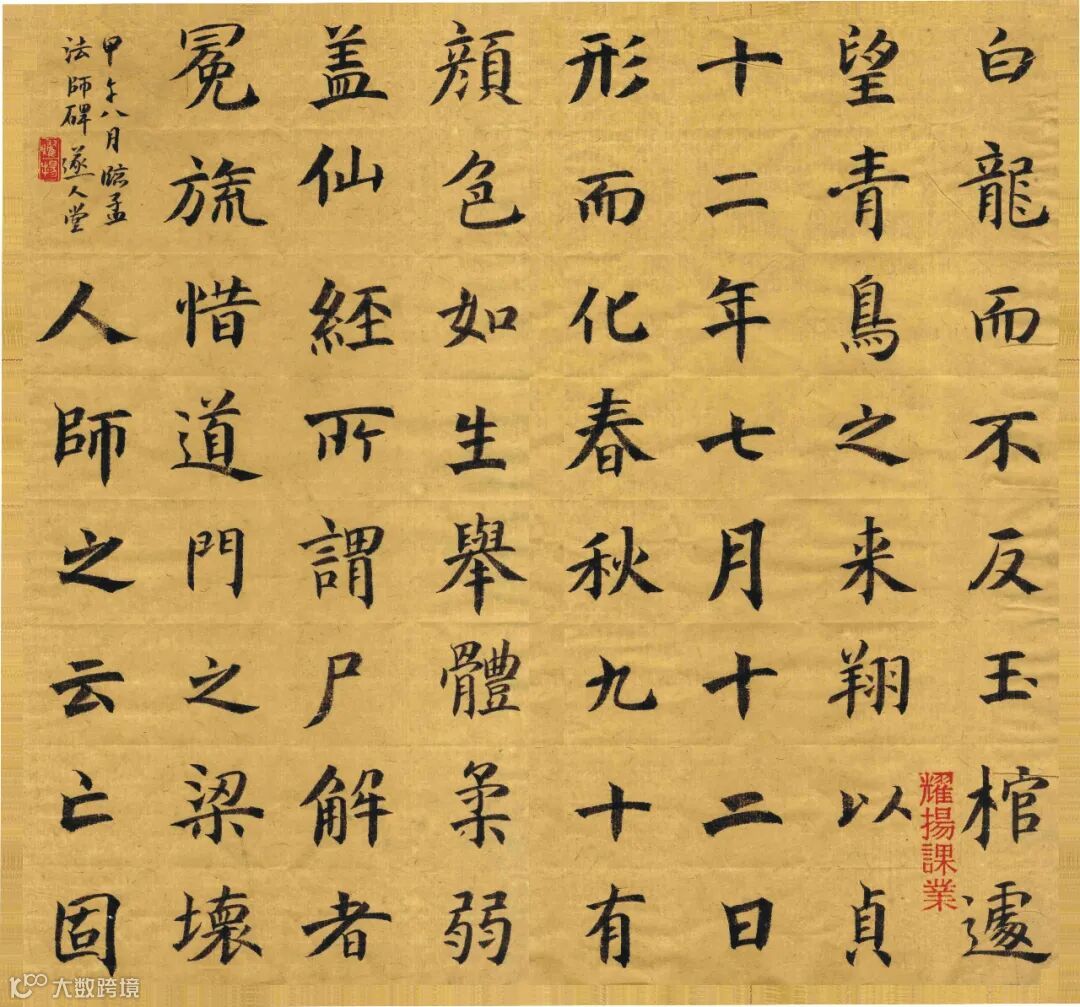 白龍而不反玉棺遽
望青鳥之来翔以貞
十二年七月十二日
形而化春秋九十有
顔色如生舉體柔弱
盖仙經所謂尸解者
冕旒惜道門之梁壞
人師之云亡固
甲午八月臨孟
法師碑 遂人堂
耀揚
耀揚課業
大数跨境